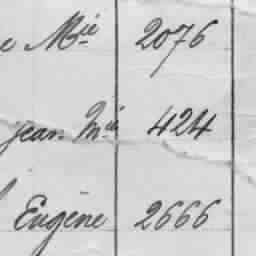 e Mie 2076
jean Mie 424
Eugène 2666